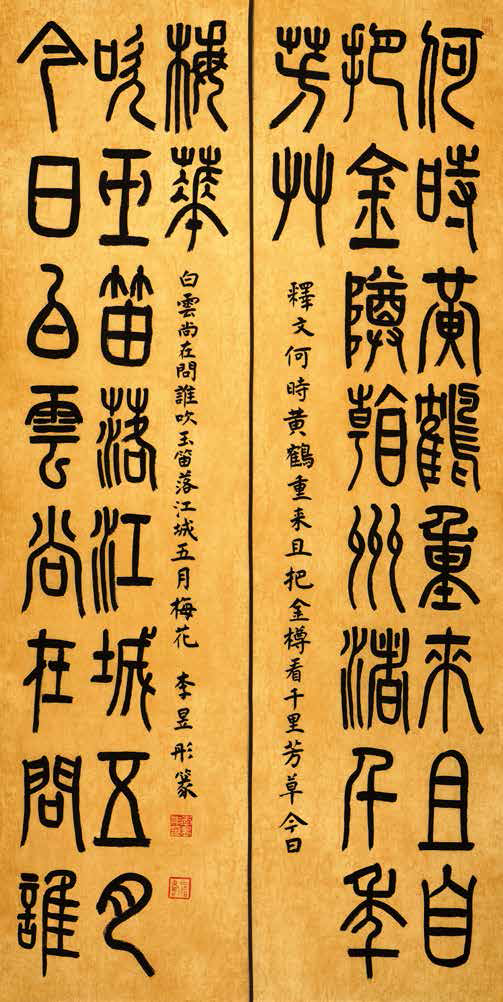 何時黃鶴重來且自
把金罇看洲渚千年
芳艸
釋文何時黃鶴重来且把金樽看千里芳草今日
今日白雲尚在問誰
吹玉笛落江城五月
梅華
白雲尚在問誰吹玉笛落江城五月梅花 李昱彤篆